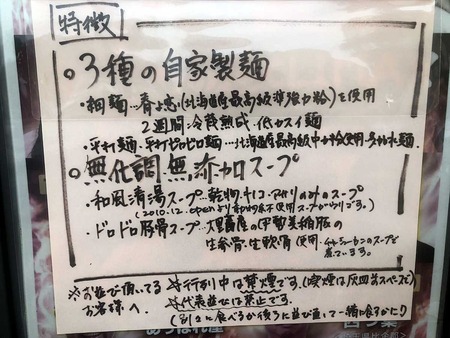 特徴
○3種の自家製麺
・細麺…春よ恋(北海道産最高級準強力粉)を使用
2週間冷蔵熟成 低カスイ麺
・平打麺・平打ピロピロ麺…北海道産最高級中力粉使用・多加水麺
○無化調・無添加スープ
・和風清湯スープ…乾物・キコ・アサリのみのスープ
(2010.12.openより動物系不使用スープがウリです。)
・ドロドロ豚骨スープ…大里畜産の伊勢美稲豚の
生拳骨・生軟骨使用
※お並び頂いてる
お客様へ
☆行列中は禁煙です。(喫煙は灰皿前スペースで)
☆代表並びは禁止です。
(別々に食べるか後ろに並び直して一緒に食るかに!)